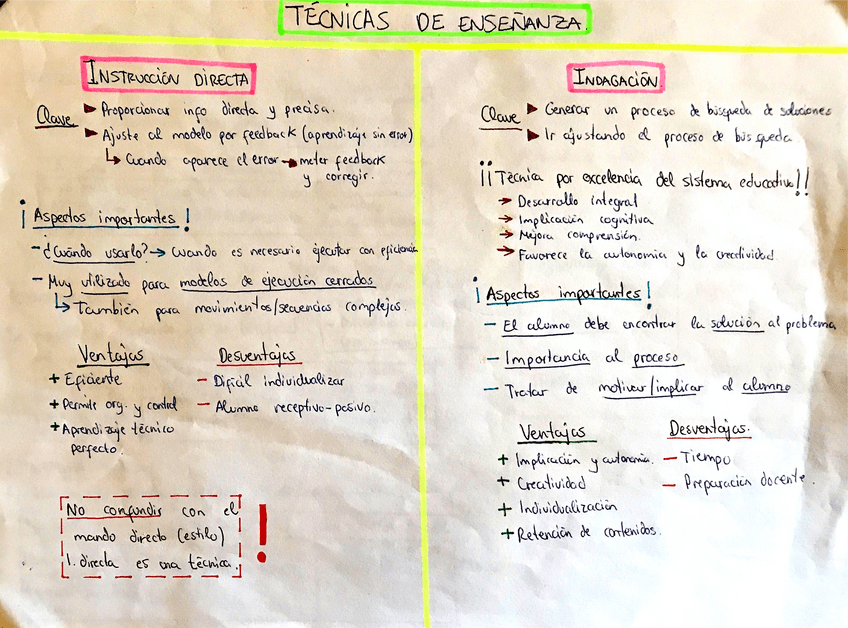 TÉCNICAS DE ENSEÑANZA.
INSTRUCCIÓN DIRECTA
Clave ► Proporcionar info directa y precisa.
► Ajuste al modelo por feedback (aprendizaje sin error)
↳ Cuando aparece el error → meter feedback
y corregir.
¡Aspectos importantes!
- ¿Cuándo usarlo? → Cuando es necesario ejecutar con eficiencia
- Muy utilizado para modelos de ejecución cerrados
↳ También para movimientos/secuencias complejas.
Ventajas
+ Eficiente
+ Permite org. y control
+ Aprendizaje técnico
perfecto.
Desventajas
- Difícil individualizar
- Alumno receptivo-pasivo.
No confundir con el
mando directo (estilo)
I. directa es una técnica.
!
INDAGACIÓN
Clave ► Generar un proceso de búsqueda de soluciones
► Ir ajustando el proceso de búsqueda
¡¡Técnica por excelencia del sistema educativo!!
→ Desarrollo integral
→ Implicación cognitiva
→ Mejora comprensión.
→ Favorece la autonomía y la creatividad.
¡Aspectos importantes!
- El alumno debe encontrar la solución al problema
- Importancia al proceso
- Tratar de motivar/implicar al alumno
Ventajas
+ Implicación y autonomía.
+ Creatividad
+ Individualización
+ Retención de contenidos.
Desventajas.
- Tiempo
- Preparación docente.